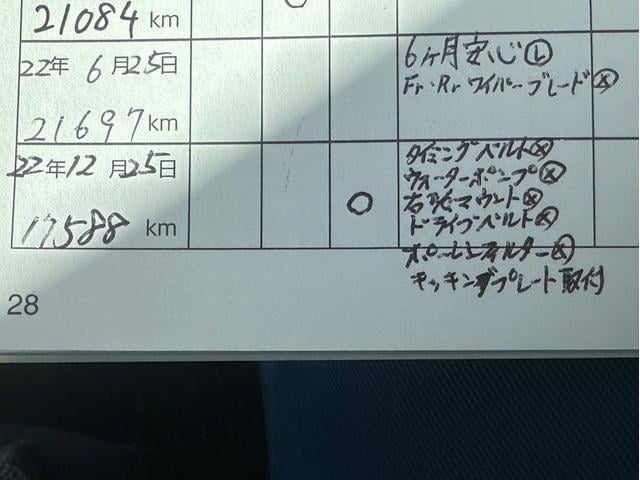 21084 km
22年 6月25日
6ヶ月安心 Ⓛ
Fr・Rr ワイパーブレード ⓧ
21697 km
22年12月25日
タイミングベルト ⓧ
ウォーターポンプ ⓧ
マウント ⓧ
ドライブベルト ⓧ
17588 km
フィルター ⓧ
キッキングプレート取付
28